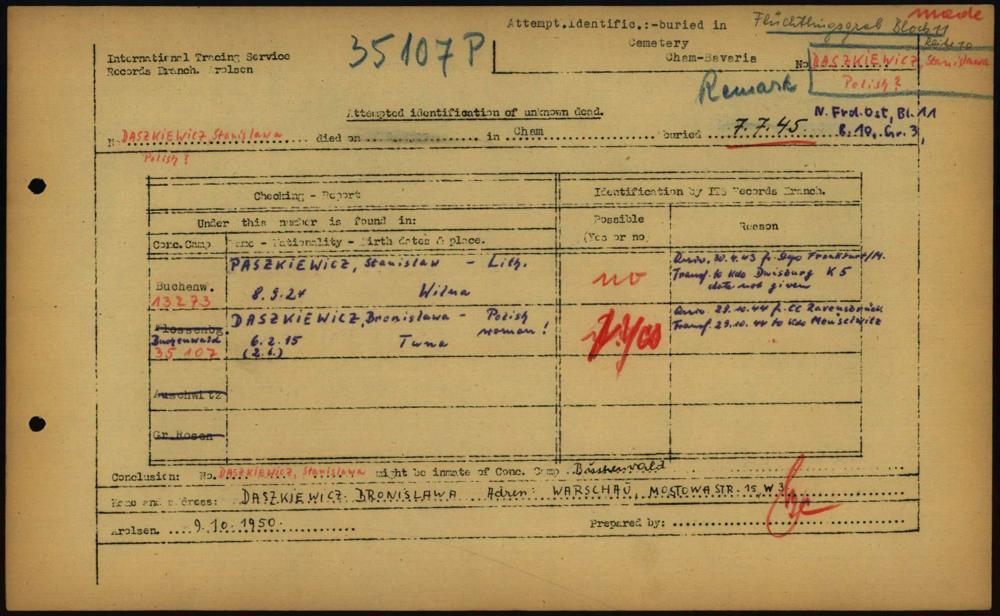 made
Attempt.Identific.:-buried in Flüchtlingsgrab Block 11
Reihe 10
Cemetery
Cham-Bavaria
No DASZKIEWICZ, Stanislawa
Polish?
International Tracing Service
Records Branch. Arolsen
35107 P
Remark
Attempted identification of unknown dead.
N. Frd.Ost, Bl. 11
R. 10, Gr. 3
No DASZKIEWICZ Stanislawa died on in Cham buried 7.7.45
Polish?
Checking - Report
Identification by ITS Records Branch.
Under this number is found in:
Possible
(Yes or no)
Reason
Conc.Camp
Name - Nationality - Birth dates & place.
PASZKIEWICZ, Stanislaw - Lith.
8.9.24 Wilna
Buchenw.
13273
no
Arriv. 30.4.43 fr. Stapo Frankfurt/M.
Transf. to Kdo Duisburg K 5
date not given
Flossenbg.
Buchenwald
35 107
DASZKIEWICZ, Bronislawa - Polish
woman!
6.2.15 Tuna
(2.6.)
yes
Arriv. 29.10.44 fr. CC Ravensbrück
Transf. 29.10.44 to Kdo Meuselwitz
Auschwitz
Gr.Rosen
Conclusion: No. DASZKIEWICZ, Stanislawa might be inmate of Conc. Camp Buchenwald
Name and address: DASZKIEWICZ BRONISLAWA Adren: WARSCHAU, MOSTOWASTR. 15, W 3
Arolsen. 9.10.1950.
Prepared by: